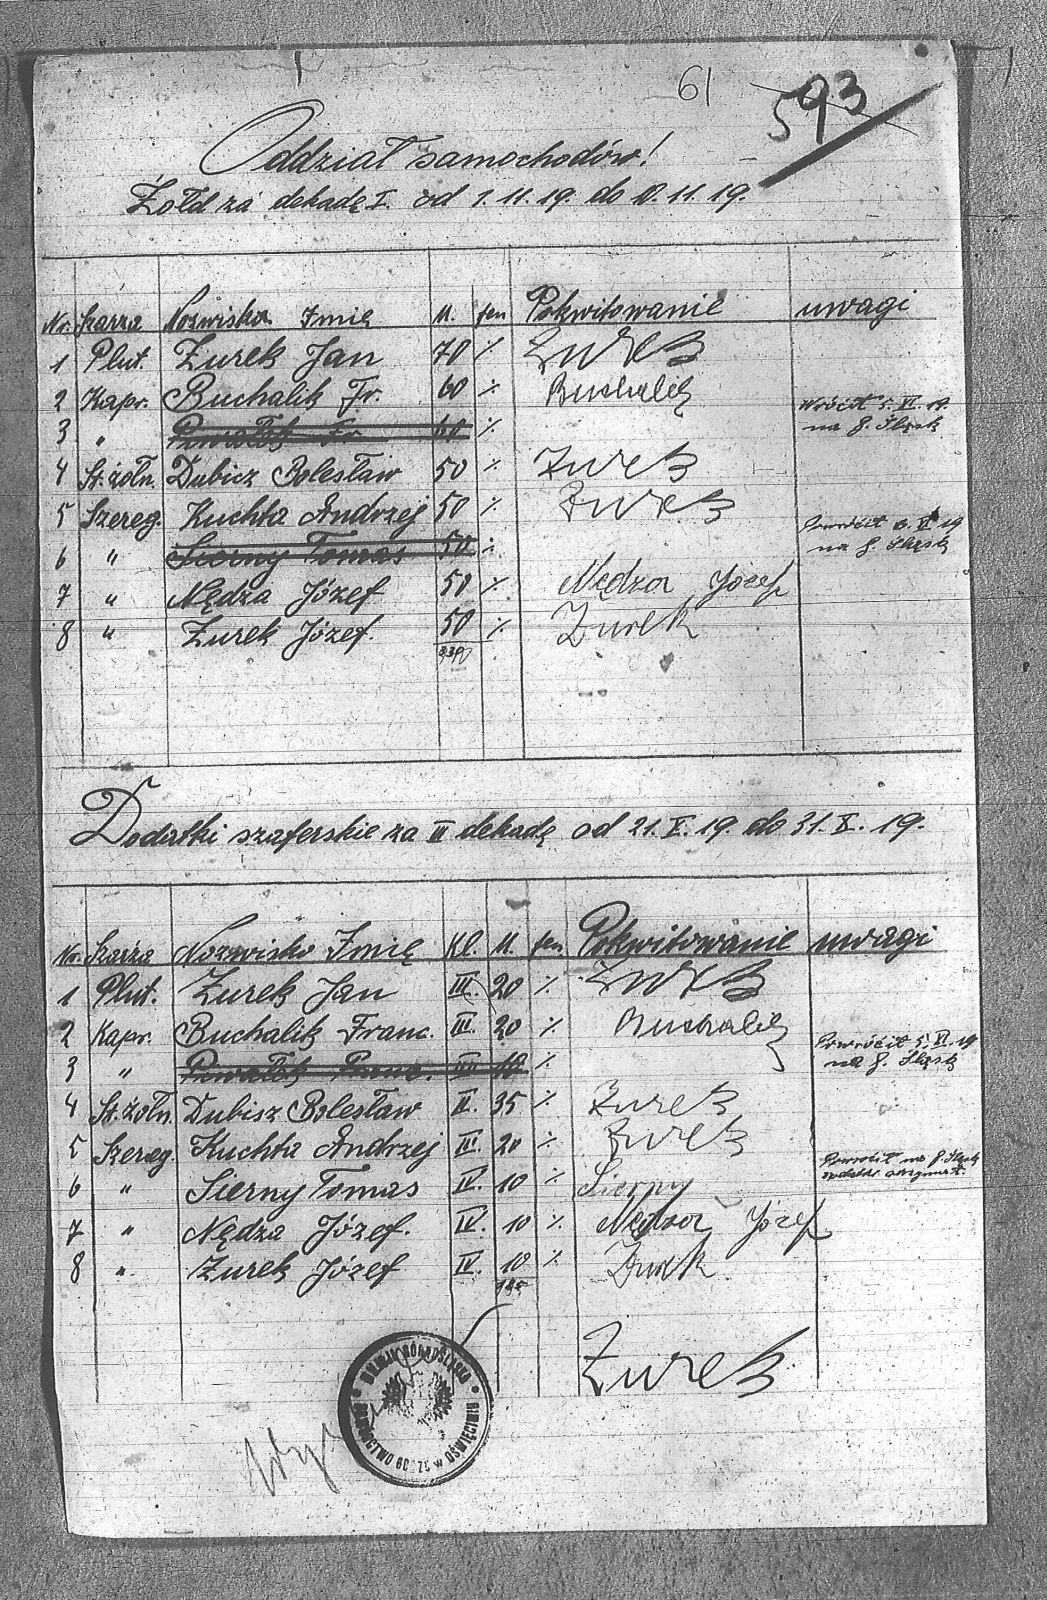 61
593
Oddział samochodów!
Żołd za dekadę I. od 1.11.19. do 10.11.19.
Nr. Szarża Nazwisko Imię M. fen Pokwitowanie uwagi
1 Plut. Żurek Jan 70 ⁒ Żurek
2 Kapr. Buchalik Fr. 60 ⁒ Buchalik
3 „ Powałek Fr. 60 ⁒ Wrócił 5. XI. 19. na G. Śląsk
4 St. żołn. Dubicz Bolesław 50 ⁒ Żurek
5 Szereg. Kuchta Andrzej 50 ⁒ Żurek
6 „ Sierny Tomas 50 ⁒ Powrócił 6. XI 19 na G. Śląsk
7 „ Nędza Józef 50 ⁒ Nędza Józef
8 „ Żurek Józef. 50 ⁒ Żurek
Dodatki szaferskie za III dekadę od 21. X. 19. do 31. X. 19.
Nr. Szarża Nazwisko Imię Kl. M. fen Pokwitowanie uwagi
1 Plut. Żurek Jan III. 20 ⁒ Żurek
2 Kapr. Buchalik Franc. III. 20 ⁒ Buchalik
3 „ Powałek Franc. 10 ⁒ Powrócił 5. XI. 19 na G. Śląsk
4 St. żołn. Dubisz Bolesław II. 35 ⁒ Żurek
5 Szereg. Kuchta Andrzej III. 20 ⁒ Żurek
6 „ Sierny Tomas IV. 10 ⁒ Sierny Powrócił na G. Śląsk
7 „ Nędza Józef. IV. 10 ⁒ Nędza Józef
8 „ Żurek Józef IV. 10 ⁒ Żurek
125
Żurek
MILICJA GÓRNOŚLĄSKA
DOWÓDZTWO OBOZU w OŚWIĘCIMIU